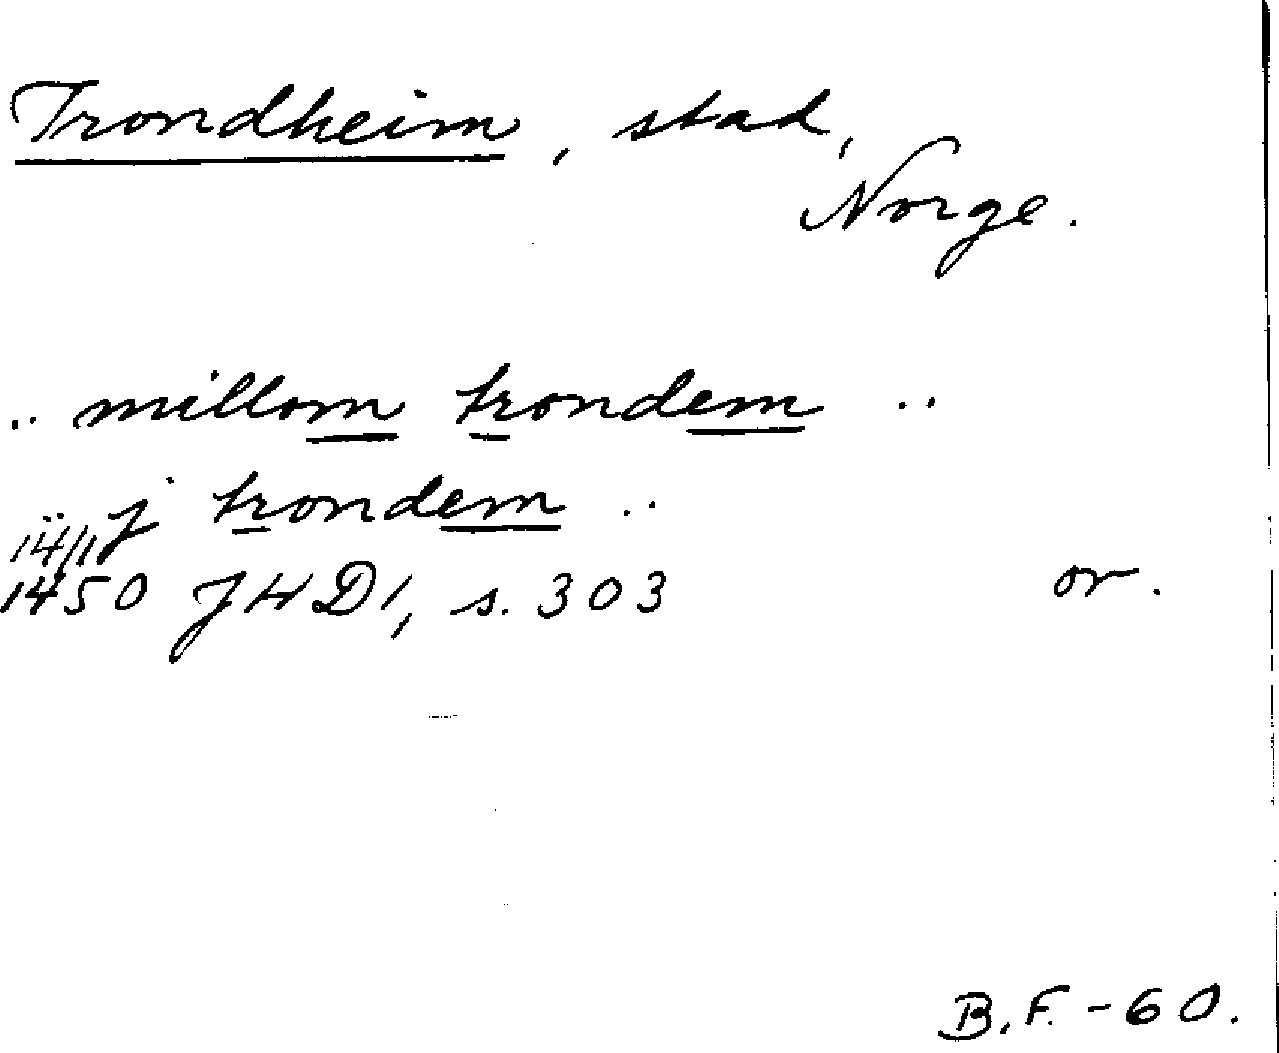 Trondheim, stad,
Norge.
.. millom trondem ..
j trondem ..
14/11
1450 JHD 1, s. 303 or.
B.F. - 60.